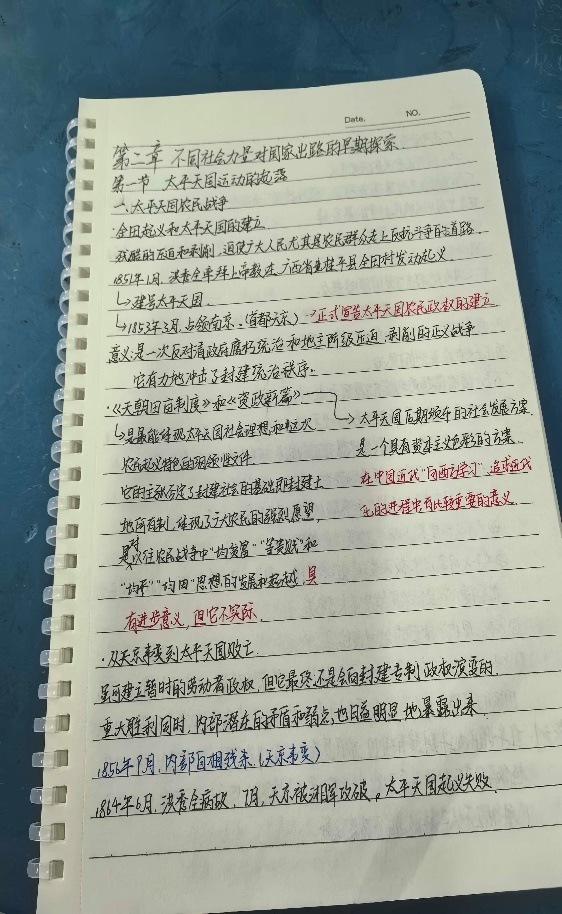 Date. NO.
第二章 不同社会力量对国家出路的早期探索
第一节 太平天国运动的起落
一、太平天国农民战争
·金田起义和太平天国的建立
残酷的压迫和剥削,迫使广大人民尤其是农民群众走上反抗斗争的道路.
1851年1月,洪秀全率拜上帝教在广西省桂平县金田村发动起义
↳建号太平天国.
↳1853年3月,占领南京.(首都天京)→正式宣告太平天国农民政权的建立
意义:是一次反对清政府腐朽统治和地主阶级压迫、剥削的正义战争
它有力地冲击了封建统治秩序。
·《天朝田亩制度》和《资政新篇》
↳是最能体现太平天国社会理想和这次
农民起义特色的纲领性文件
它的主张否定了封建社会的基础即封建土
地所有制,体现了广大农民的强烈愿望,
是对以往农民战争中“均贫富”“等贵贱”和
“均平”“均田”思想的发展和超越,具
有进步意义,但它不实际.
↳太平天国后期颁布的社会发展方案.
是一个具有资本主义色彩的方案.
在中国近代“向西方学习”,追求近代
化的进程中有比较重要的意义
·从天京事变到太平天国败亡
虽可建立暂时的劳动者政权,但它最终还是会向封建专制政权演变的.
重大胜利同时,内部潜在的矛盾和弱点,也日益明显地暴露出来.
1856年9月,内部自相残杀.(天京事变)
1864年6月,洪秀全病故,7月,天京被湘军攻破。太平天国起义失败.